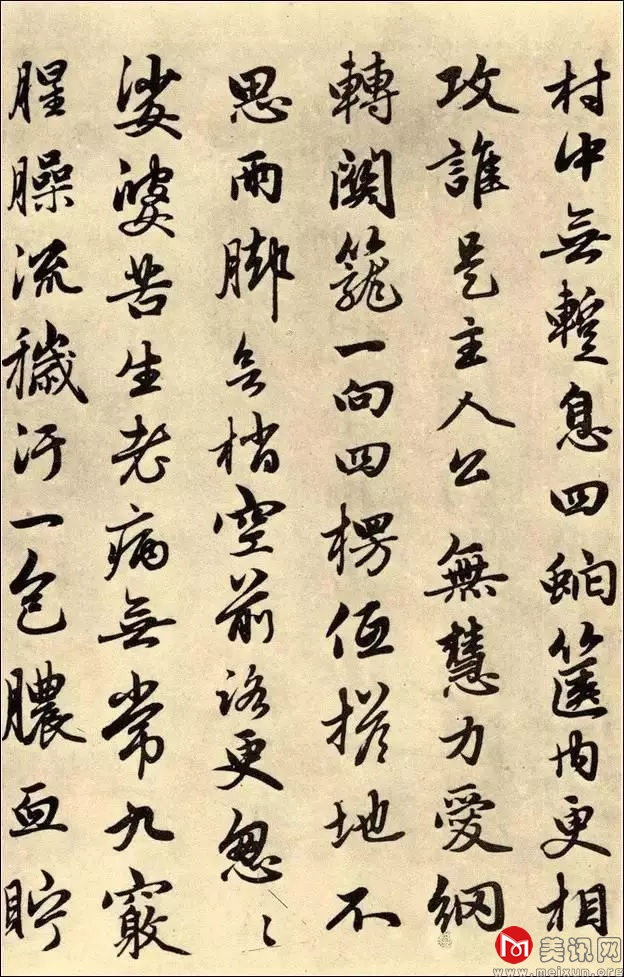 村中無蹔息四虵篋内更相
攻誰是主人公無慧力愛網
轉關籠一向四楞但搭地不
思兩脚會梢空前路更怱〻
娑婆苦生老病無常九竅
腥臊流穢汙一包膿血貯
美讯网
www.meixun.org